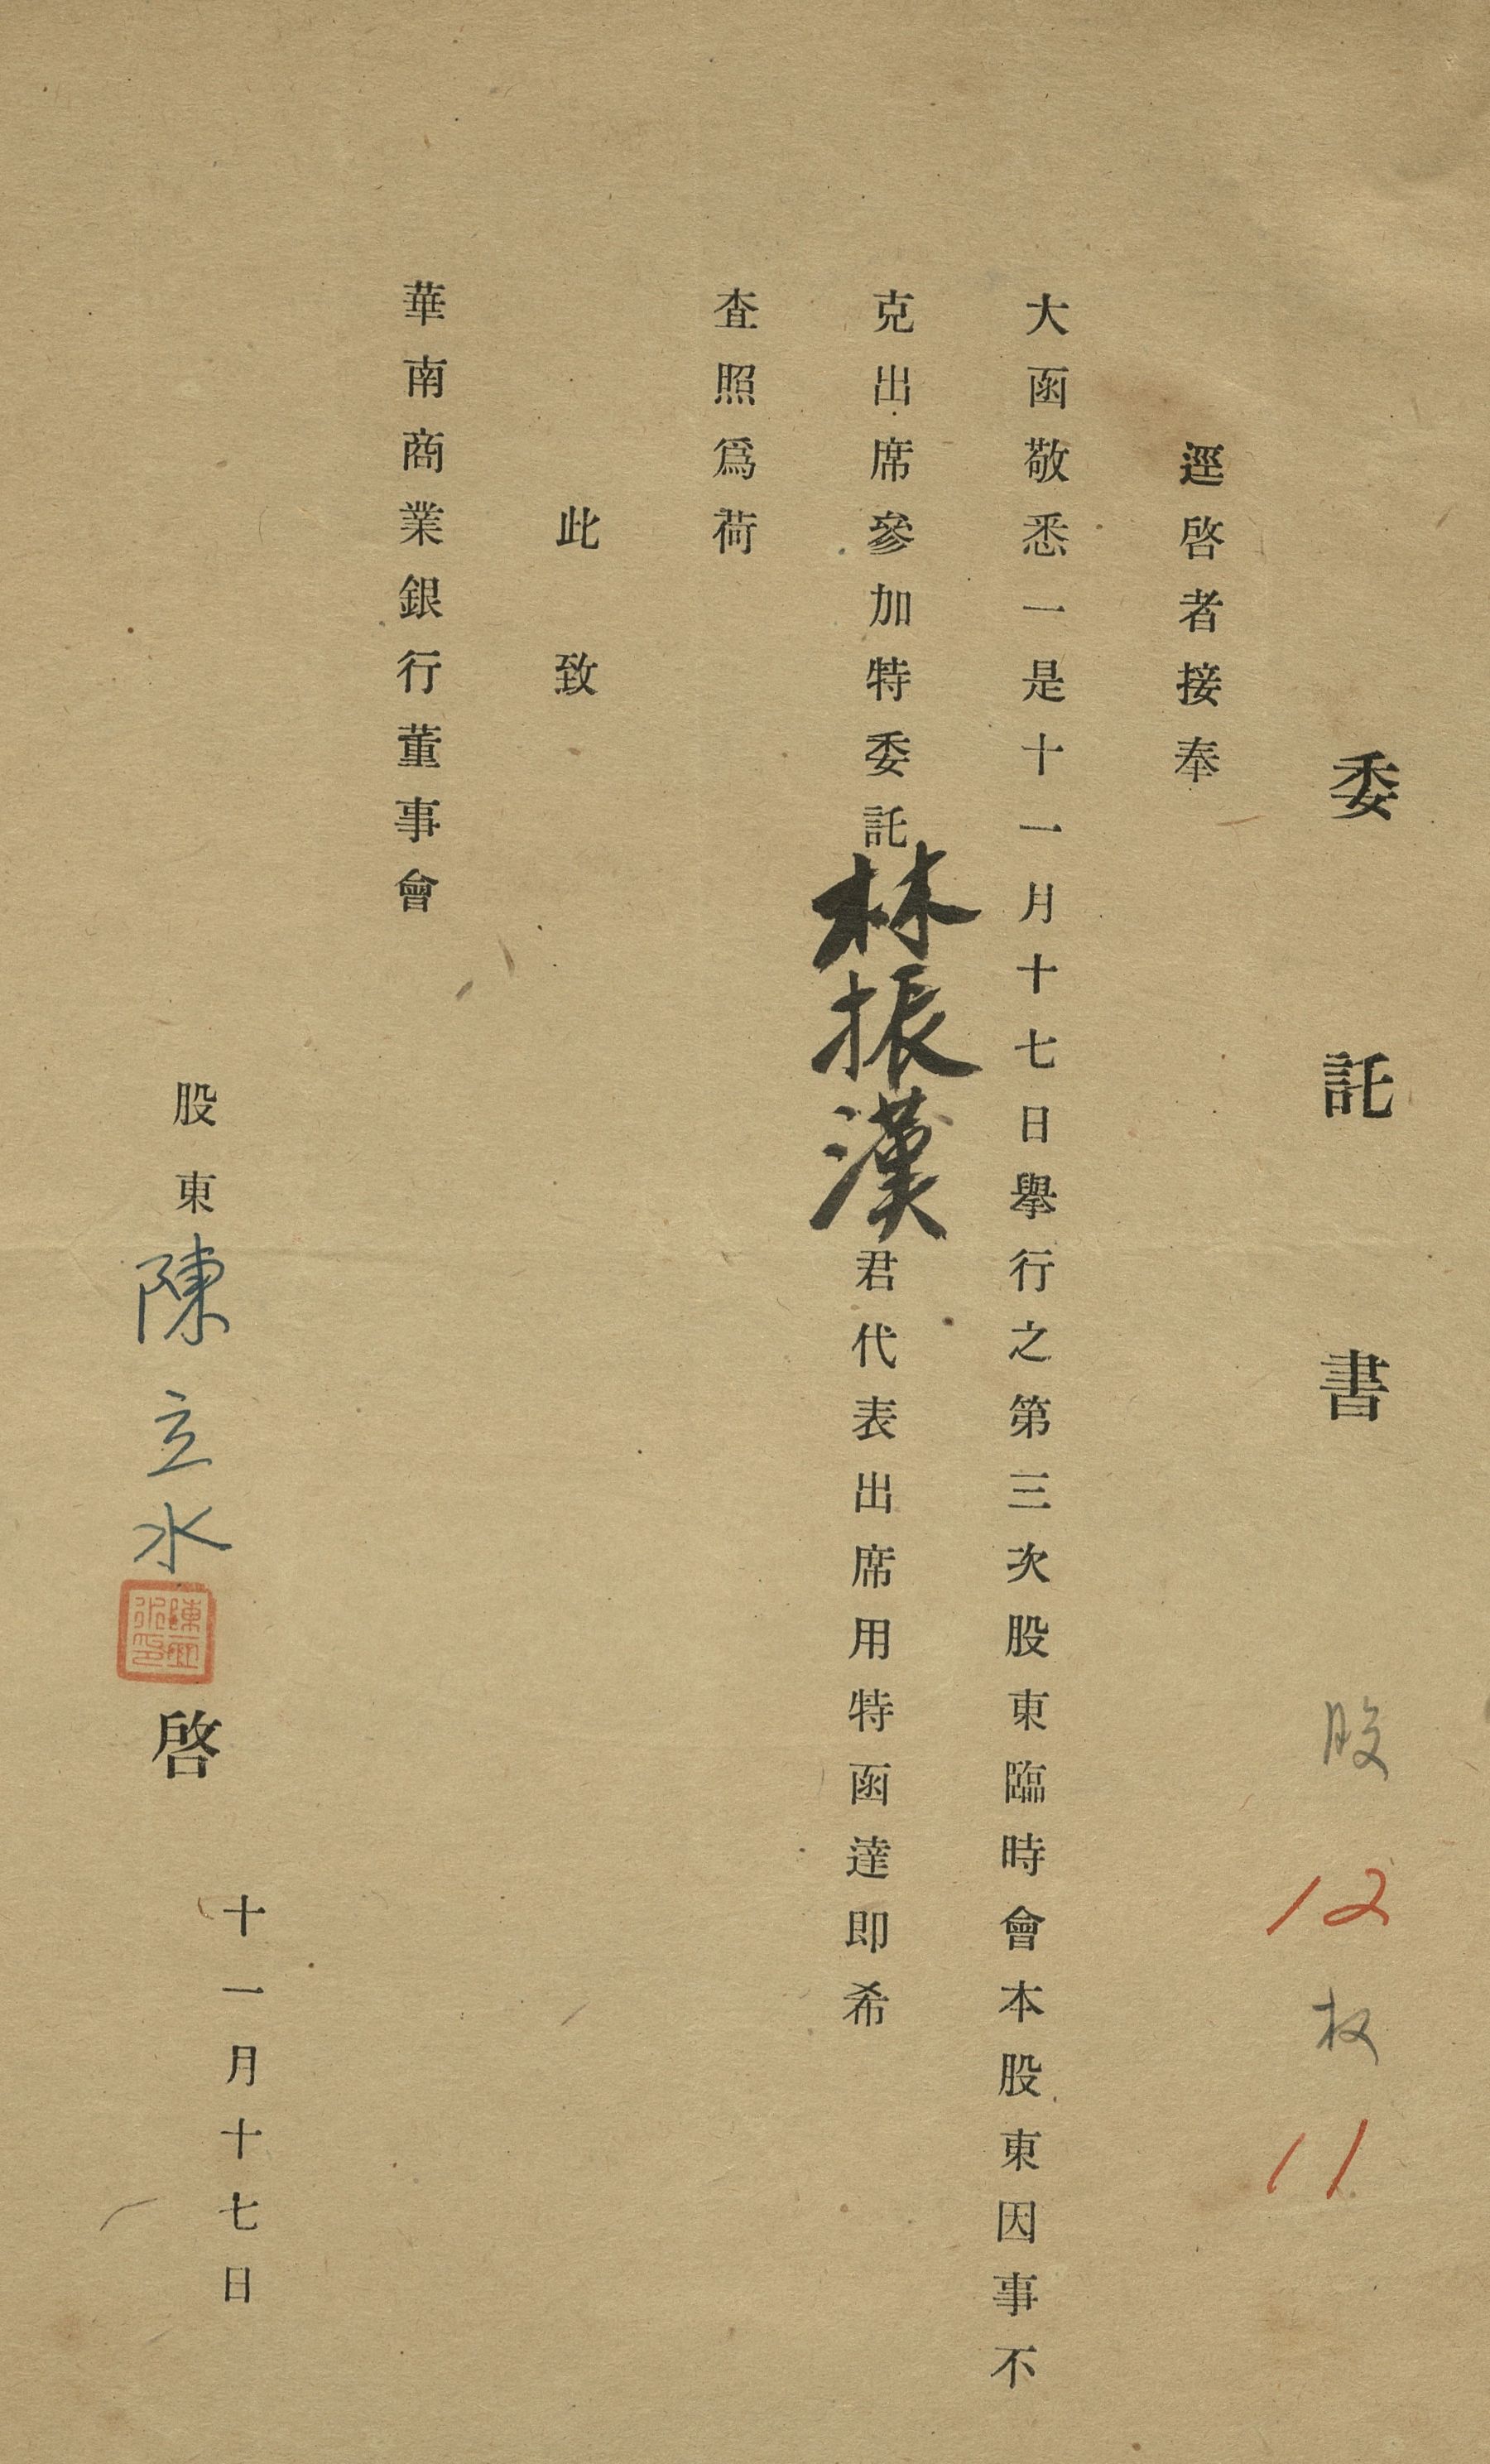 委託書
股 12 权 11
逕啓者接奉
大函敬悉一是十一月十七日舉行之第三次股東臨時會本股東因事不
克出席參加特委託林振漢君代表出席用特函達即希
査照爲荷
此致
華南商業銀行董事會
股東陳立水啓
陳立水印
十一月十七日